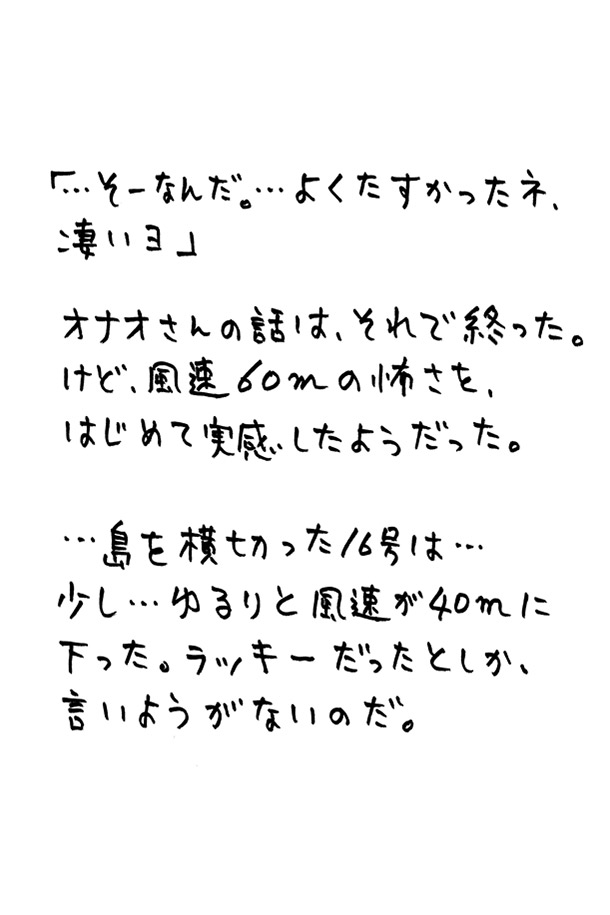 「…そーなんだ。…よくたすかったネ、
凄いヨ」
オナオさんの話は、それで終った。
けど、風速60mの怖さを、
はじめて実感したようだった。
…島を横切った16号は…
少し…ゆるりと風速が40mに
下った。ラッキーだったとしか、
言いようがないのだ。